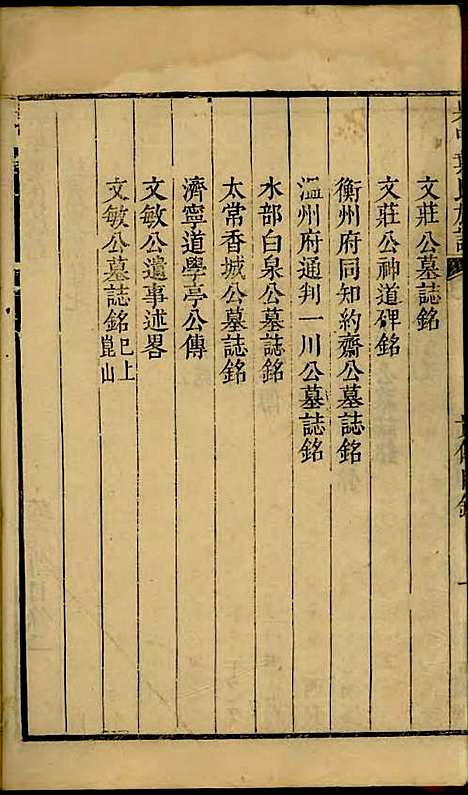 文莊公墓誌銘
文莊公神道碑銘
衡州府同知約齋公墓誌銘
溫州府通判一川公墓誌銘
水部白泉公墓誌銘
太常香城公墓誌銘
濟寧道學亭公傳
文敏公遺事述畧
文敏公墓誌銘 已上崑山